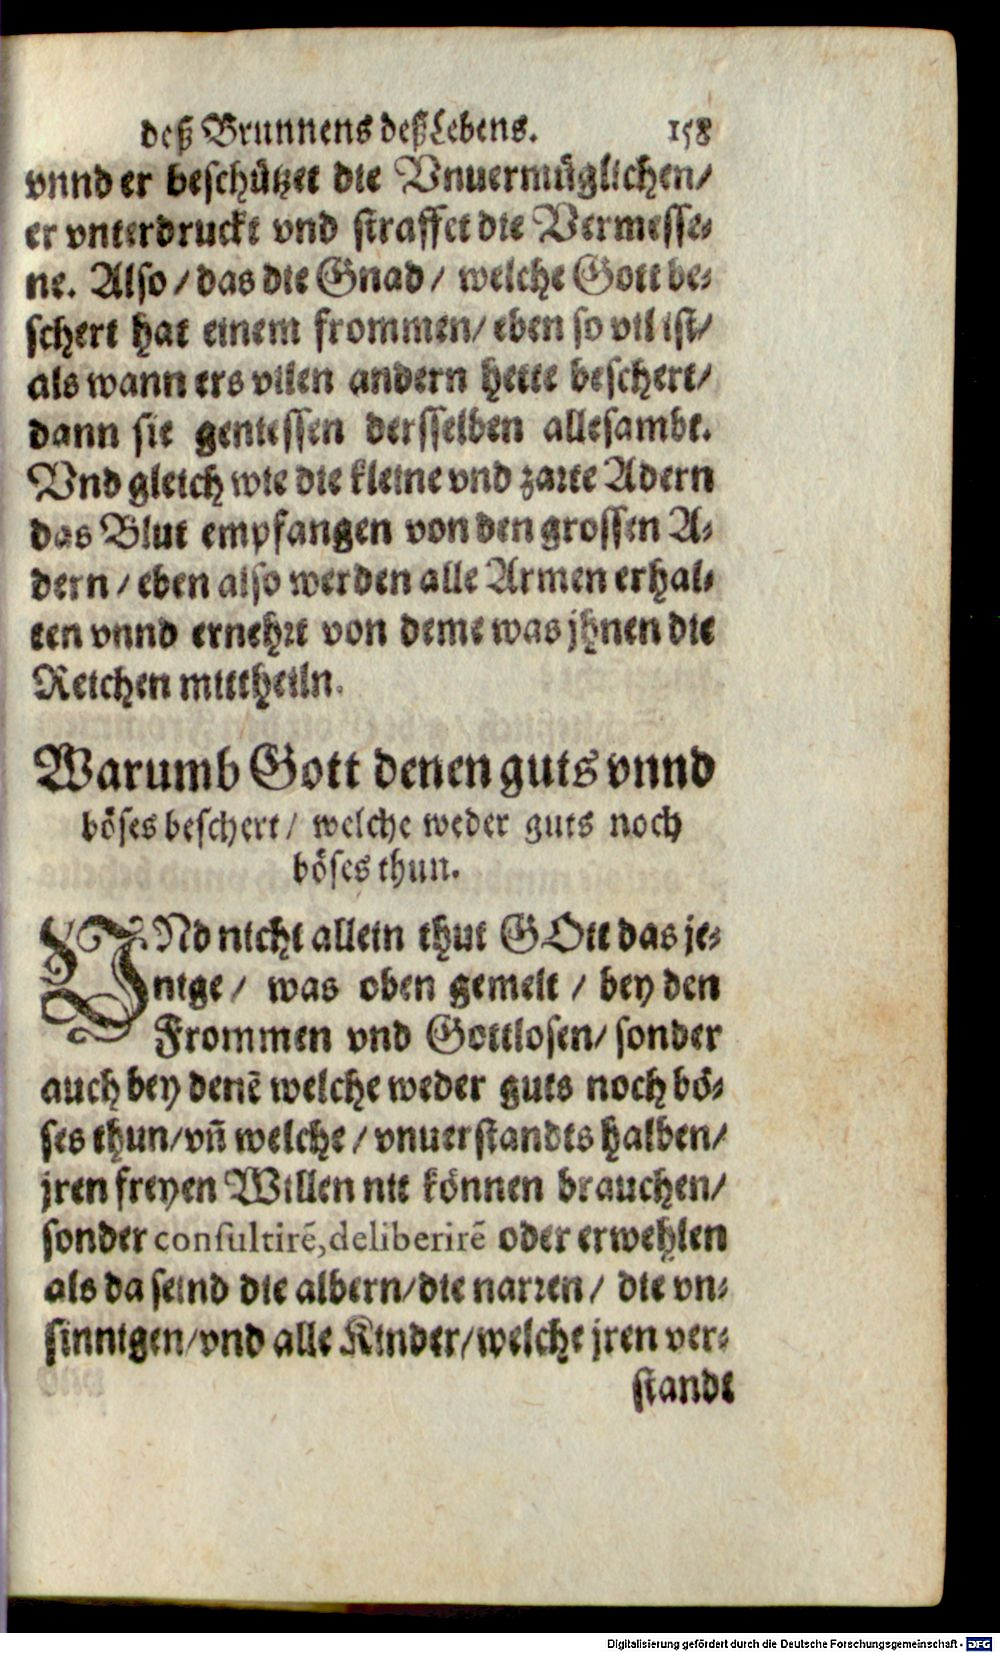 deß Brunnens deß Lebens. 158
vnnd er beschützet die Vnuermüglichen/
er vnterdruckt vnd straffet die Vermesse⸗
ne. Also / das die Gnad / welche Gott be⸗
schert hat einem frommen/ eben so vil ist/
als wann ers vilen andern hette beschert/
dann sie geniessen dersselben allesambt.
Vnd gleich wie die kleine vnd zarte Adern
das Blut empfangen von den grossen A⸗
dern / eben also werden alle Armen erhal⸗
ten vnnd ernehrt von deme was jhnen die
Reichen mittheiln.
Warumb Gott denen guts vnnd
böses beschert / welche weder guts noch
böses thun.
VNd nicht allein thut GOtt das je⸗
nige / was oben gemelt / bey den
Frommen vnd Gottlosen/ sonder
auch bey denē welche weder guts noch bö⸗
ses thun/vñ welche / vnuerstandts halben/
jren freyen Willen nit können brauchen/
sonder consultirē, deliberirē oder erwehlen
als da seind die albern/die narren / die vn⸗
sinnigen/vnd alle Kinder/welche jren ver⸗
standt
Digitalisierung gefördert durch die Deutsche Forschungsgemeinschaft - DFG